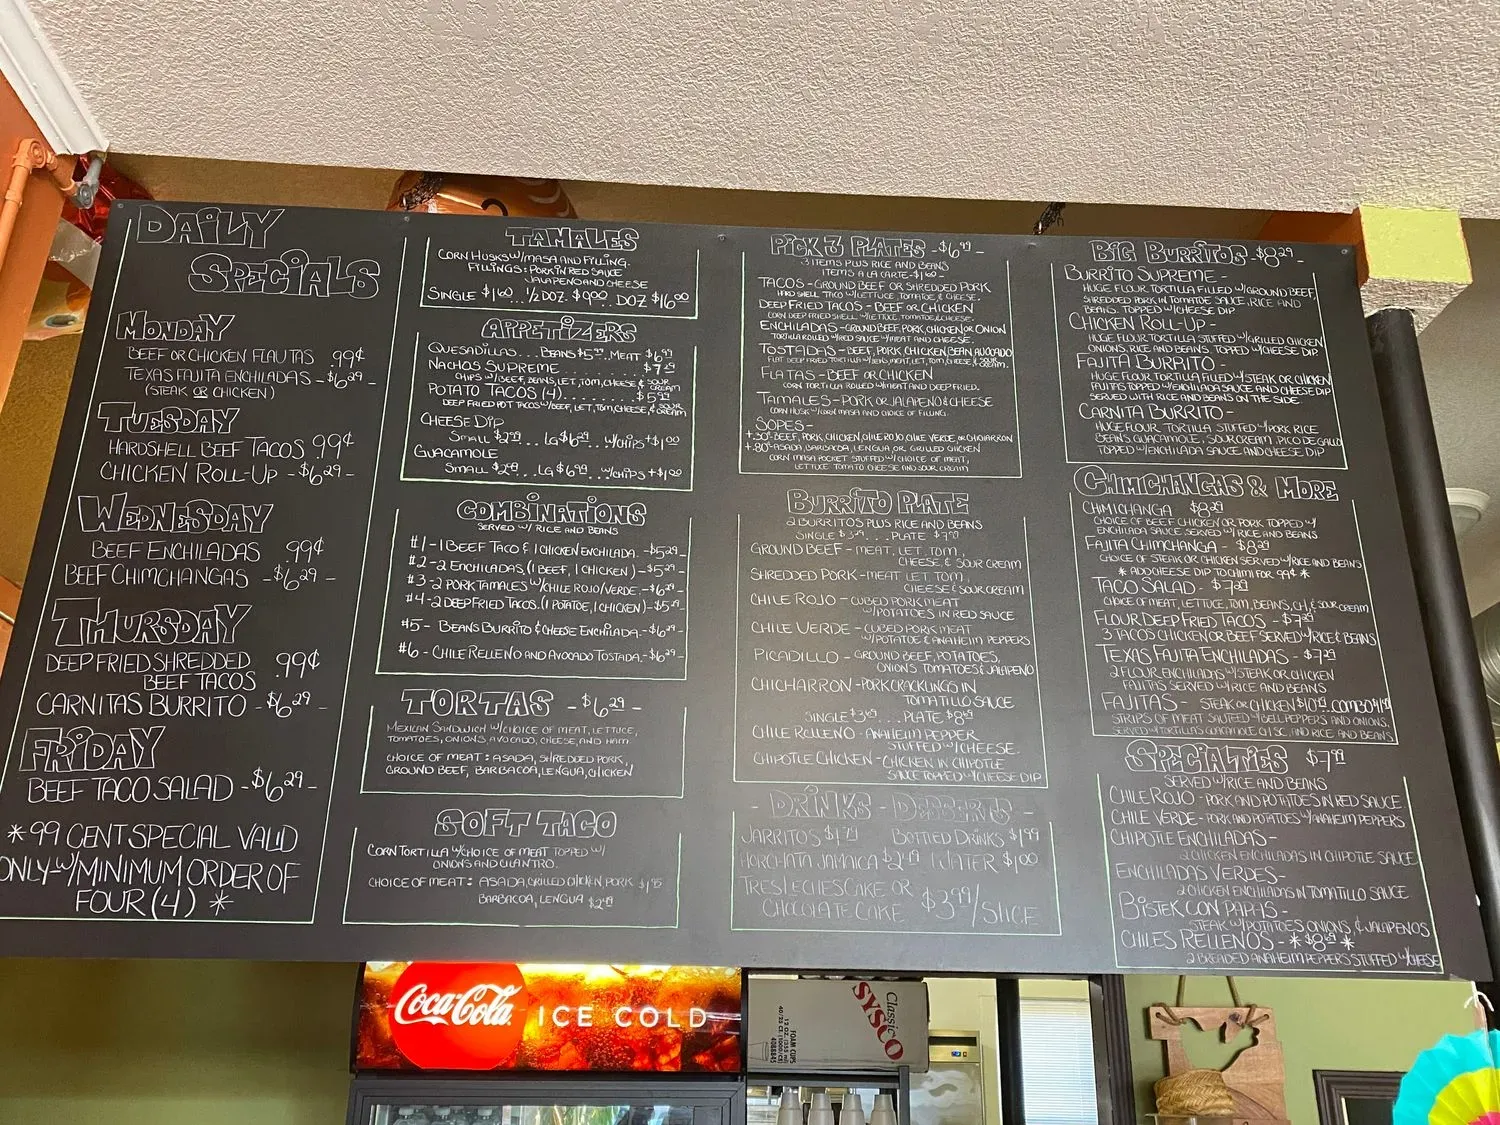 DAILY
SPECIALS
MONDAY
BEEF OR CHICKEN FLAUTAS .99¢
TEXAS FAJITA ENCHILADAS - $6.29 -
(STEAK OR CHICKEN)
TUESDAY
HARDSHELL BEEF TACOS .99¢
CHICKEN ROLL-UP - $6.29 -
WEDNESDAY
BEEF ENCHILADAS .99¢
BEEF CHIMCHANGAS - $6.29 -
THURSDAY
DEEP FRIED SHREDDED .99¢
BEEF TACOS
CARNITAS BURRITO - $6.29 -
FRIDAY
BEEF TACO SALAD - $6.29 -
*99 CENT SPECIAL VALID
ONLY W/MINIMUM ORDER OF
FOUR (4) *
TAMALES
CORN HUSKS W/MASA AND FILLING.
FILLINGS: PORK IN RED SAUCE
JALAPENO AND CHEESE
SINGLE $1.60... 1/2 DOZ. $9.00.... DOZ $16.00
APPETIZERS
QUESADILLAS... BEANS $5.99.. MEAT $6.99
NACHOS SUPREME........ $7.29
CHIPS W/BEEF, BEANS, LET, TOM, CHEESE & SOUR CREAM
POTATO TACOS (4)........ $5.99
DEEP FRIED POT TACOS W/BEEF, LET, TOM, CHEESE, & SOUR CREAM
CHEESE DIP
SMALL $2.99... LG $6.29... W/CHIPS +$1.00
GUACAMOLE
SMALL $2.49... LG $6.99... W/CHIPS +$1.00
COMBINATIONS
SERVED W/ RICE AND BEANS
#1 - 1 BEEF TACO & 1 CHICKEN ENCHILADA. - $5.29 -
#2 - 2 ENCHILADAS, (1 BEEF, 1 CHICKEN) - $5.29 -
#3 - 2 PORK TAMALES W/CHILE ROJO/VERDE. - $6.29 -
#4 - 2 DEEP FRIED TACOS. (1 POTATOE, 1 CHICKEN) - $5.29 -
#5 - BEANS BURRITO & CHEESE ENCHILADA. - $6.29 -
#6 - CHILE RELLENO AND AVOCADO TOSTADA. - $6.29 -
TORTAS - $6.29 -
MEXICAN SANDWICH W/CHOICE OF MEAT, LETTUCE,
TOMATOES, ONIONS AVOCADO, CHEESE, AND HAM.
CHOICE OF MEAT: ASADA, SHREDDED PORK,
GROUND BEEF, BARBACOA, LENGUA, CHICKEN
SOFT TACO
CORN TORTILLA W/CHOICE OF MEAT TOPPED W/
ONIONS AND CILANTRO.
CHOICE OF MEAT: ASADA, GRILLED CHICKEN, PORK $1.95
BARBACOA, LENGUA $2.49
PICK 3 PLATES - $6.99 -
3 ITEMS PLUS RICE AND BEANS
ITEMS A LA CARTE - $1.60 -
TACOS - GROUND BEEF OR SHREDDED PORK
HARD SHELL TACO W/LETTUCE, TOMATOE & CHEESE.
DEEP FRIED TACOS - BEEF OR CHICKEN
CORN DEEP FRIED SHELL W/LETTUCE, TOMATO & CHEESE.
ENCHILADAS - GROUND BEEF, PORK, CHICKEN OR ONION
TORTILLA ROLLED W/RED SAUCE W/MEAT AND CHEESE.
TOSTADAS - BEEF, PORK, CHICKEN, BEAN, AVOCADO
FLAT DEEP FRIED TORTILLA W/BEANS, MEAT, LET, TOM, CHEESE, & SOUR CREAM.
FLATAS - BEEF OR CHICKEN
CORN TORTILLA ROLLED W/MEAT AND DEEP FRIED.
TAMALES - PORK OR JALAPENO & CHEESE
CORN HUSK W/CORN MASA AND CHOICE OF FILLING.
SOPES -
+.30¢ BEEF, PORK, CHICKEN, CHILE ROJO, CHILE VERDE, OR CHICHARRON
+.80¢ ASADA, BARBACOA, LENGUA OR GRILLED CHICKEN
CORN MASA POCKET STUFFED W/CHOICE OF MEAT,
LETTUCE TOMATO CHEESE AND SOUR CREAM
BURRITO PLATE
2 BURRITOS PLUS RICE AND BEANS
SINGLE $3.29... PLATE $7.99
GROUND BEEF - MEAT, LET, TOM,
CHEESE, & SOUR CREAM
SHREDDED PORK - MEAT LET TOM,
CHEESE & SOUR CREAM
CHILE ROJO - CUBED PORK MEAT
W/POTATOES IN RED SAUCE
CHILE VERDE - CUBED PORK MEAT
W/POTATOE & ANAHEIM PEPPERS
PICADILLO - GROUND BEEF, POTATOES,
ONIONS TOMATOES & JALAPENO
CHICHARRON - PORK CRACKLINGS IN
TOMATILLO SAUCE
SINGLE $3.69.... PLATE $8.49
CHILE RELLENO - ANAHEIM PEPPER
STUFFED W/CHEESE.
CHIPOTLE CHICKEN - CHICKEN IN CHIPOTLE
SAUCE TOPPED W/CHEESE DIP
- DRINKS - DESSERTS -
JARRITOS $1.79 BOTTLED DRINKS $1.99
HORCHATA JAMAICA $2.49 WATER $1.00
TRES LECHES CAKE OR $3.99/SLICE
CHOCOLATE CAKE
BIG BURRITOS $8.29 -
BURRITO SUPREME -
HUGE FLOUR TORTILLA FILLED W/GROUND BEEF,
SHREDDED PORK IN TOMATOE SAUCE, RICE AND
BEANS. TOPPED W/CHEESE DIP
CHICKEN ROLL-UP -
HUGE FLOUR TORTILLA STUFFED W/GRILLED CHICKEN
ONIONS, RICE AND BEANS TOPPED W/CHEESE DIP
FAJITA BURRITO -
HUGE FLOUR TORTILLA FILLED W/STEAK OR CHICKEN
FAJITAS TOPPED W/ENCHILADA SAUCE AND CHEESE DIP
SERVED WITH RICE AND BEANS ON THE SIDE.
CARNITA BURRITO -
HUGE FLOUR TORTILLA STUFFED W/PORK RICE
BEANS GUACAMOLE, SOUR CREAM, PICO DE GALLO
TOPPED W/ENCHILADA SAUCE AND CHEESE DIP
CHIMICHANGAS & MORE
CHIMICHANGA $8.29
CHOICE OF BEEF CHICKEN OR PORK TOPPED W/
ENCHILADA SAUCE, SERVED W/RICE AND BEANS
FAJITA CHIMCHANGA - $8.29
CHOICE OF STEAK OR CHICKEN SERVED W/RICE AND BEANS
* ADD CHEESE DIP TO CHIMI FOR 99¢ *
TACO SALAD - $7.29
CHOICE OF MEAT, LETTUCE, TOM, BEANS, CH, & SOUR CREAM
FLOUR DEEP FRIED TACOS - $7.29
3 TACOS CHICKEN OR BEEF SERVED W/RICE & BEANS
TEXAS FAJITA ENCHILADAS - $7.29
2 FLOUR ENCHILADAS W/STEAK OR CHICKEN
FAJITAS SERVED W/RICE AND BEANS
FAJITAS - STEAK OR CHICKEN $10.99, COMBO
STRIPS OF MEAT SAUTEED W/BELL PEPPERS AND ONIONS.
SERVED W/TORTILLAS GUACAMOLE AND RICE AND BEANS
SPECIALTIES $7.99
SERVED W/RICE AND BEANS
CHILE ROJO - PORK AND POTATOES IN RED SAUCE
CHILE VERDE - PORK AND POTATOES W/ANAHEIM PEPPERS
CHIPOTLE ENCHILADAS -
2 CHICKEN ENCHILADAS IN CHIPOTLE SAUCE
ENCHILADAS VERDES -
2 CHICKEN ENCHILADAS IN TOMATILLO SAUCE
BISTEK CON PAPAS -
STEAK W/POTATOES ONIONS, & JALAPENOS
CHILES RELLENOS - * $8.49 *
2 BREADED ANAHEIM PEPPERS STUFFED W/CHEESE
Coca-Cola ICE COLD
Classic
SYSCO
FOAM CUPS